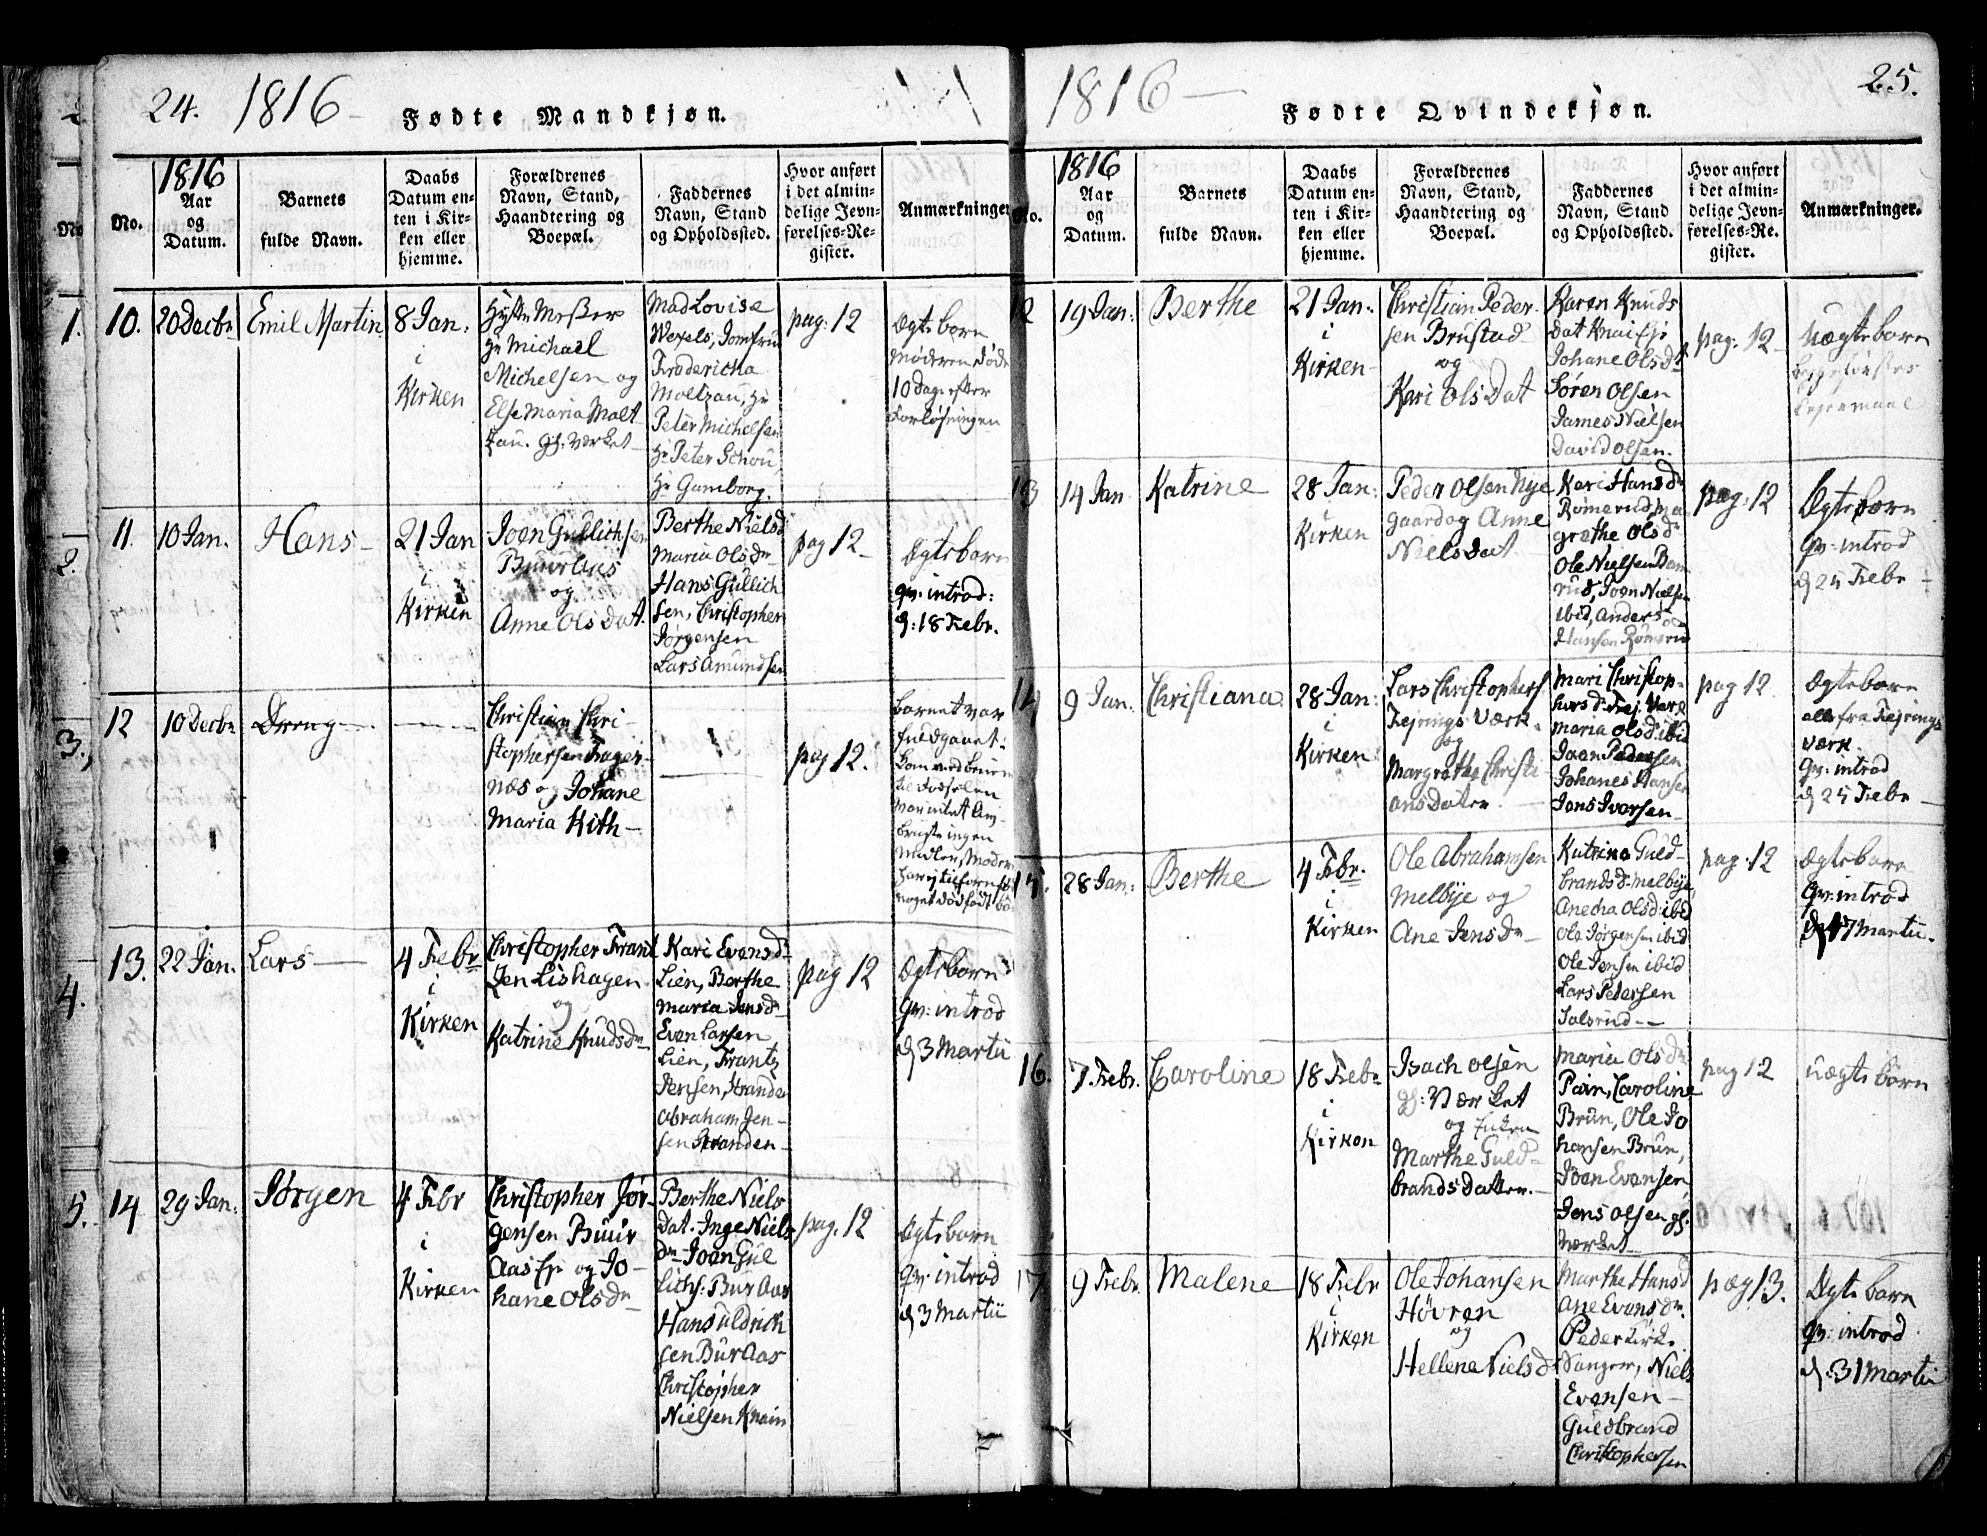 24. 1816
Fødte Mandkjøn.
No.
1816
Aar
og
Datum.
Barnets
fulde Navn.
Daabs
Datum en-
ten i Kir-
ken eller
hjemme.
Forældrenes
Navn, Stand,
Haandtering og
Boepæl.
Faddernes
Navn, Stand
og Opholdssted.
Hvor anført
i det almin-
delige Jevn-
førelses-Re-
gister.
Anmærkninger
10.
20 Decbr
Emil Martin
8 Jan:
i
Kirken
Hytte Mester
Hr Michael
Michelsen og
Else Maria Molt
zau. gl: Værket
Mad Lovise
Wexels, Jomfru
Fredericha
Moltzau, Hr
Peter Michelsen
Hr Peter Schou
Hr Gamborg.
pag: 12
Ægtebørn
Moderen døde
10 Dage efter
Forløsningen
11.
10 Jan.
Hans
21 Jan
i
Kirken
Joen Gullichsen
og
Anne Ols Dat.
Berthe Nielsd
Maria Olsdr
Hans Gullich
sen, Christopher
Jørgensen
Lars Amundsen
pag 12
Ægtebørn
qv: introd:
d: 18 Febr.
12
10 Decbr
Dreng
Christian Chri-
stophersen Frager-
næs og Johane
Maria Kith
pag 12.
Barnet var
fuldgaaet.
13.
22 Jan.
Lars
4 Febr
i
Kirken
Christopher Frant
zen Lishagen
og
Katrine Knudsdr
Kari Evensd
Lien, Berthe
Maria Jensdr
Even Larsen
Lien, Frantz
Jensen, Stranden
Abraham Jen-
sen Stranden
pag 12
Ægtebørn
qv: introd
d 3 Martii
14
29 Jan:
Jørgen
4 Febr
i
Kirken
Christopher Jør-
gensen Buur
Aas Er og Jo-
hane Olsdr
Berthe Niels
Dat. Inge Niels
dr Joen Gul
lichs: Bur Aas
Hans Uldrich
sen Bur Aas
Christopher
Nielsen Knain
pag. 12
Ægtebørn
qv: introd
d 3 Martii
1816
25.
Fødte Qvindekjøn.
No.
1816
Aar
og
Datum.
Barnets
fulde Navn.
Daabs
Datum en-
ten i Kir-
ken eller
hjemme.
Forældrenes
Navn, Stand,
Haandtering og
Boepæl.
Faddernes
Navn, Stand
og Opholdssted.
Hvor anført
i det almin-
delige Jevn-
førelses-Re-
gister.
Anmærkninger.
12
19 Jan:
Berthe
21 Jan.
i
Kirken
Christian Peder
sen Brustad
og
Kari Ols Dat
Karen Knuds
Dat
Johane Olsdt
Søren Olsen
James Nielsen
David Olsen.
pag. 12
Uægtebørn
Leiermaal
13
14 Jan
Katrine
28 Jan:
i
Kirken
Peder Olsen Nye
gaard og Anne
Niels Dat
Kari Hansdr
Rømerud, Ma
grethe Olsd
Ole Nielsen Dam
rud, Joen Nielsen
ibid, Anders
Hansen Rømerud
pag: 12
Ægtebørn
qv: introd
d 25 Febr
14
9 Jan.
Christiana
28 Jan:
i
Kirken
Lars Christophers
Fejrings Værk
og
Margrethe Christi-
ans Dater.
Mari Christop-
hersd. Fej. Værk
Maria Olsd: ibid
Joen Pedersen
Johanes Hansen
Jens Iversen
pag 12
Ægtebørn
alle fra Fejrings
værk.
qv: introd
d 25 Febr
15.
28 Jan:
Berthe
4 Febr.
i
Kirken
Ole Abrahamsen
Melbye og
Ane Jensdr
Katrina Guld-
brandsd: Melbye
Anecha Olsd: ibid
Ole Jørgensen ibid
Ole Jensen ibid
Lars Pedersen
Julsrud
pag. 12
Ægtebørn
qv: introd
d 17 Martii.
16.
7. Febr.
Caroline
18 Febr
i
Kirken
Isach Olsen
gl: Værket
og Enken
Marthe Guld-
brands Datter.
Maria Olsdr
Parn, Caroline
Brun, Ole Jo
hansen Brun,
Joen Evensen,
Jens Olsen gl.
Værket
pag 12
Uægte børn
17
9 Febr.
Malene
18 Febr
i
Kirken
Ole Johansen
Hövren
og
Hellene Nielsd
Marthe Hansd
Ane Evensdr.
Peder Kirke
Sanger, Niels
Evensen
Guldbrand
Christophersen
pag 13.
Ægte børn
qv: introd
d: 31 Martii